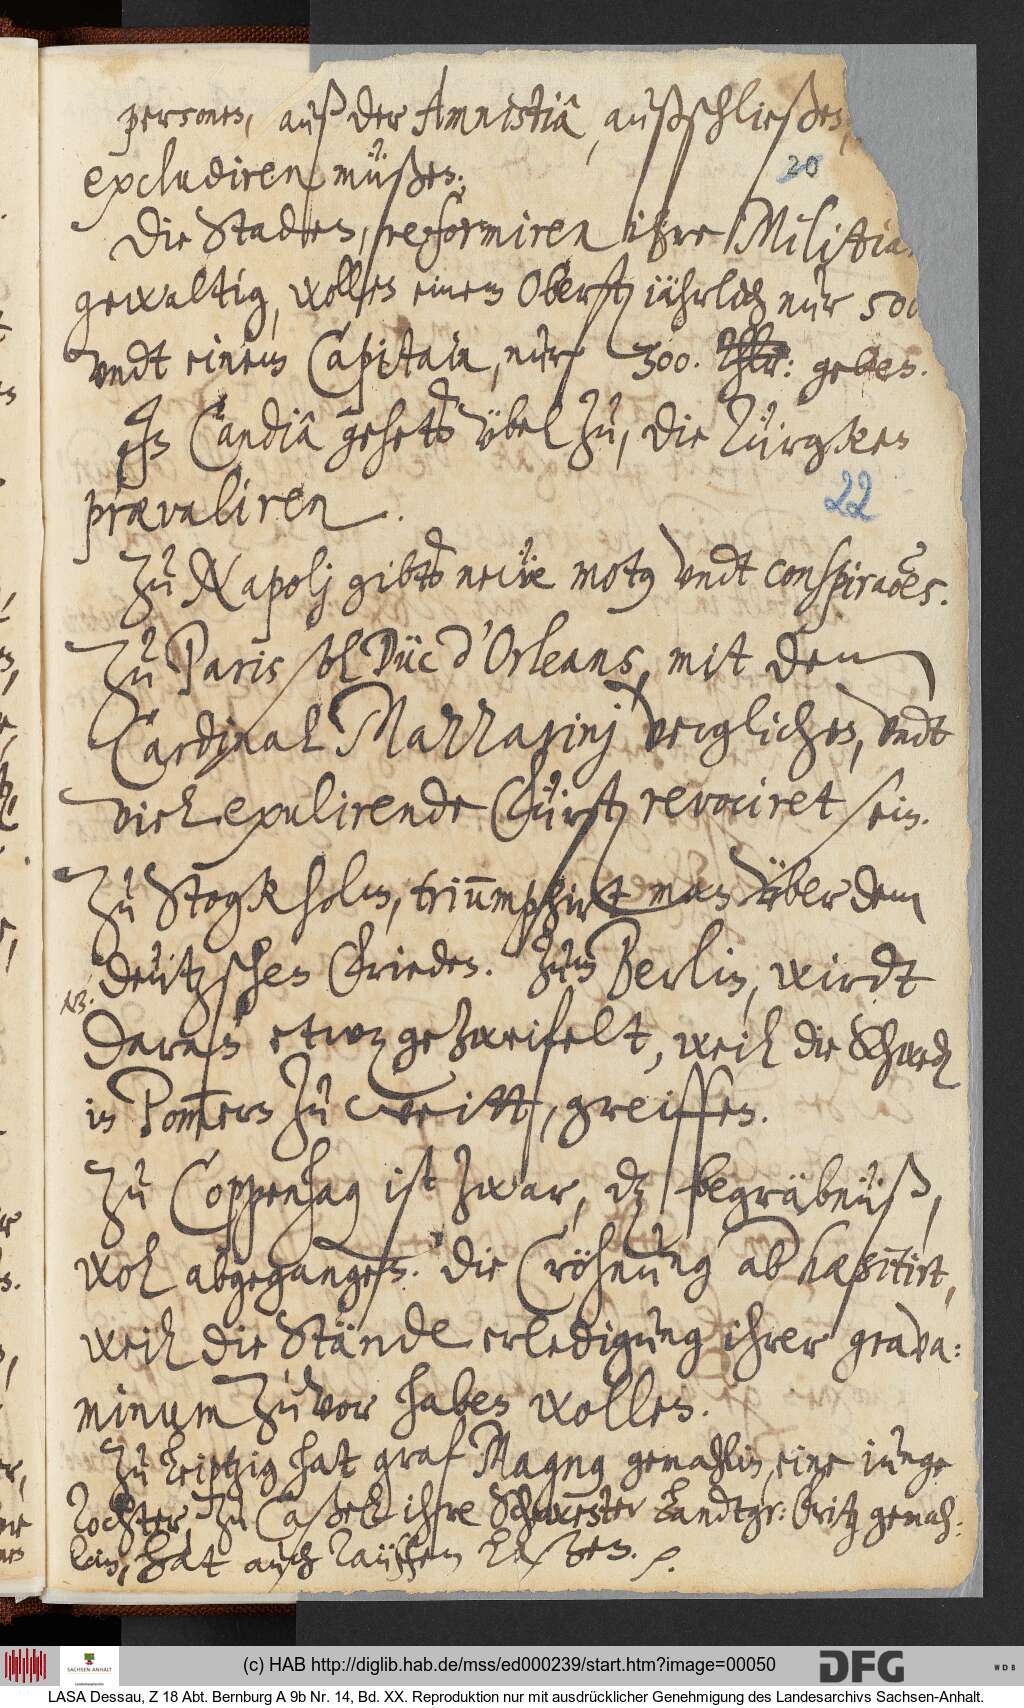 personen, auß der Amnistiâ, außschließen,
20
excludiren müßen.
Die Staden, reformiren ihre Militia,
gewaltig, wollen einem Oberst jährlich nur 500
vndt einem Capitain, nur 300. Thlr: geben.
In Candiâ gehets vbel zu, die Türgken
prævaliren.
22
Zu Napolj gibts neüe motus vndt conspirationes.
Zu Paris sol Düc d'Orleans, mit dem
Cardinal Mazzarinj verglichen, vndt
viel exulirende Fürsten revociret sein.
Zu Stogkholm, triumphirt man vber dem
deützschen Frieden. Zum Berlin, wirdt
NB.
daran etwas gezweifelt, weil die Schweden
in Pommern zu weitt, greiffen.
Zu Coppenhagen ist zwar, das begräbnüß,
wol abgegangen. die Cröhnung ab hæsitirt,
weil die Stände erledigung ihrer grava:
minum zuvor haben wollen.
Zu Leiptzig hat graf Magnus gemahlin, eine iunge
Tochter, zu Caßel ihre Schwester Landtgraf: Fritz gemah:
lin, hat auch Taüffen laßen. p.
(c) HAB http://diglib.hab.de/mss/ed000239/start.htm?image=00050
SACHSEN-ANHALT
DFG
WDB
LASA Dessau, Z 18 Abt. Bernburg A 9b Nr. 14, Bd. XX. Reproduktion nur mit ausdrücklicher Genehmigung des Landesarchivs Sachsen-Anhalt.